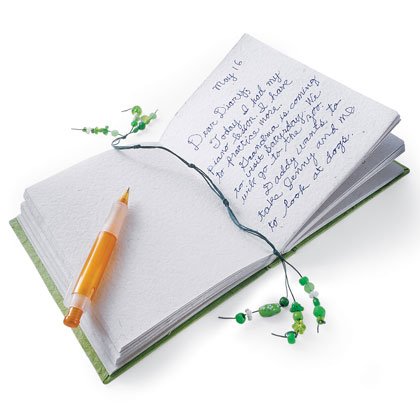 May 16
Dear Diary,
Today I had my
piano lesson. I have
to practice more.
Grandma is coming
to visit Saturday. We
will go to the zoo.
Daddy wants to
take Jenny and me
to look at dogs.